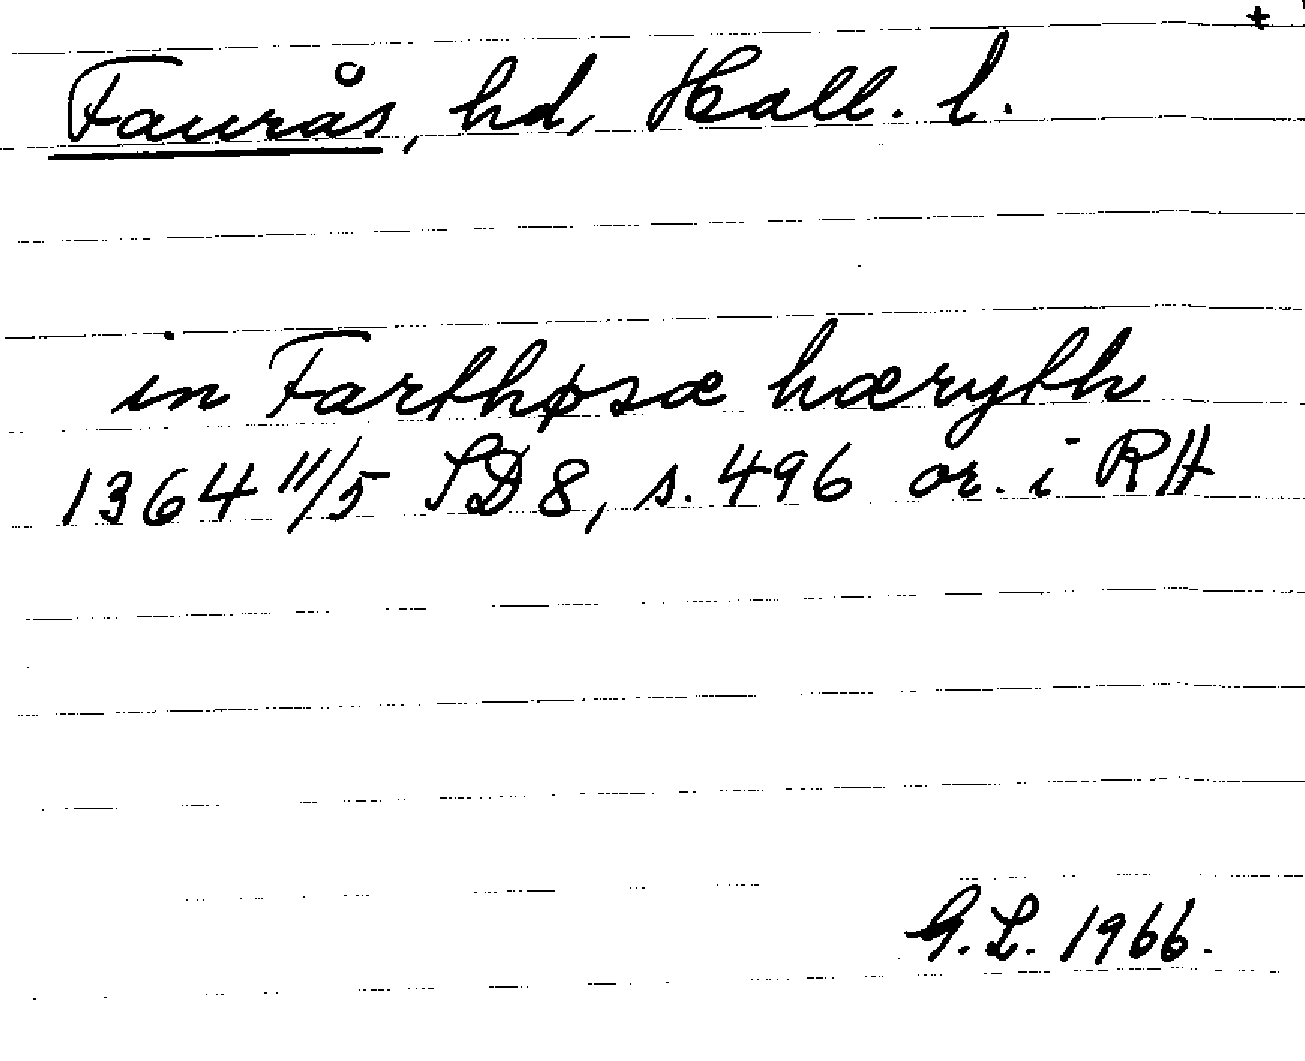 +
Faurås, hd, Hall. l.
in Farthøsæ hæryth
1364 11/5 SD 8, s. 496 or. i RA
G.L. 1966.